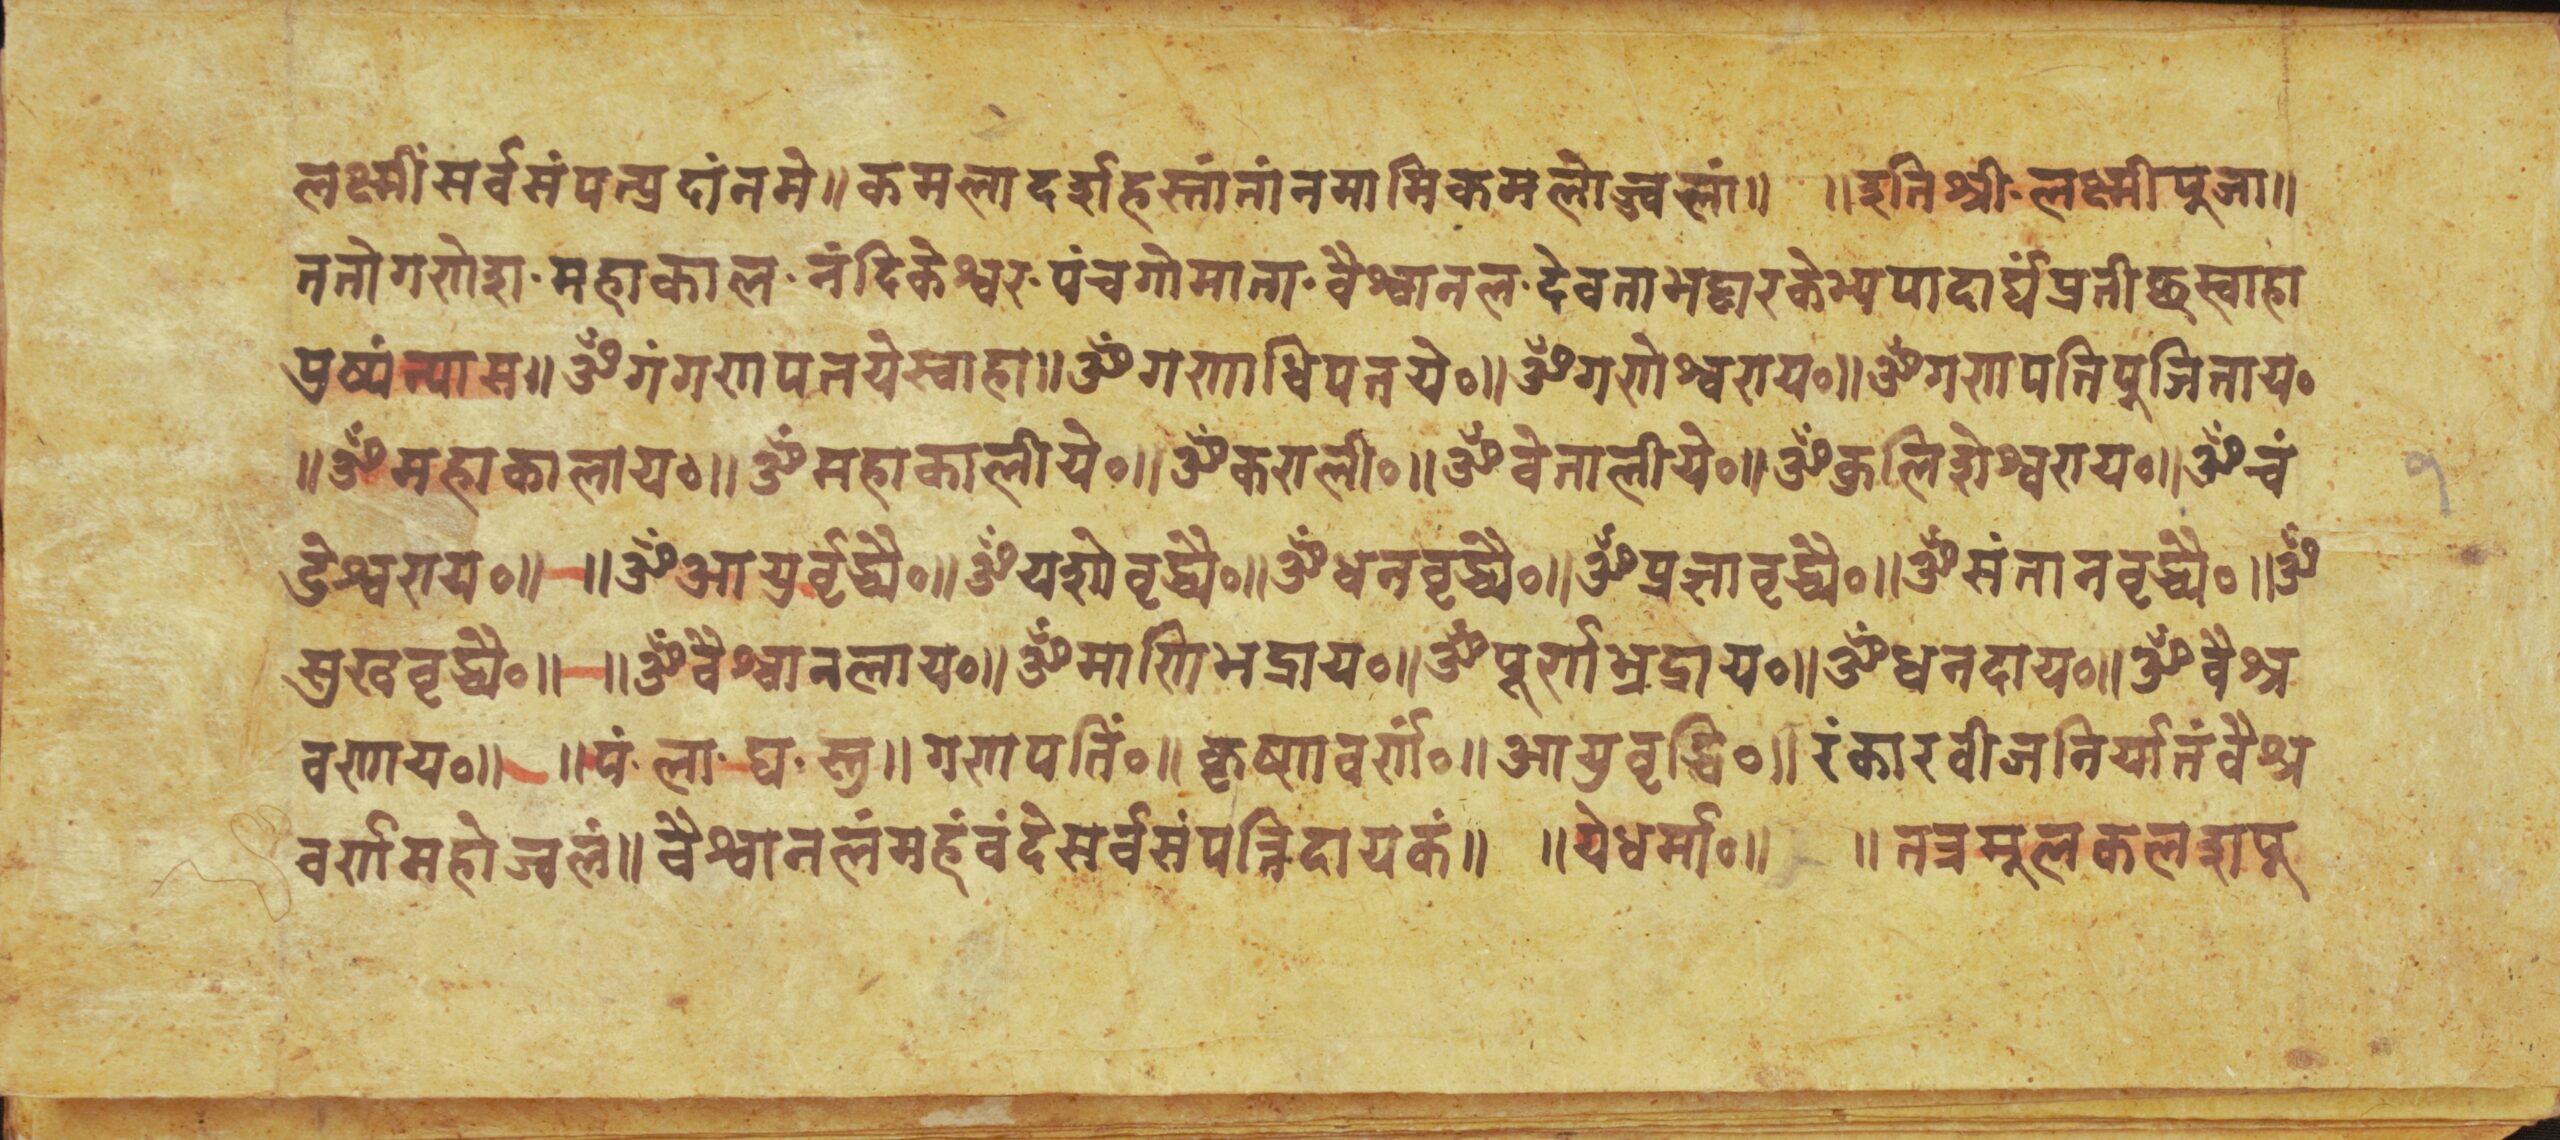 लक्ष्मीं सर्वसंपत्प्रदांनमे॥ कमलादर्शहस्तांतांनमामिकमलोज्ज्वलां॥ ॥इतिश्री·लक्ष्मीपुजा॥
ततोगणेश·महाकाल·नंदिकेश्वर·पंचगोमाता·वैश्वानल·देवताभट्टारकेभ्यपादार्घ्यंप्रतीछस्वाहा
पुष्पंन्यास॥ॐगंगणपतयेस्वाहा॥ॐगणाधिपतये०॥ॐगणेश्वराय०॥ॐगणपतिपुजिताय०
॥ॐमहाकालाय०॥ॐमहाकालीये०॥ॐकराली०॥ॐवेतालीये०॥ॐकुलिशेश्वराय०॥ॐचं
डेश्वराय०॥ ॥ॐआयुर्वृद्ध्यै०॥ॐयशोवृद्ध्यै०॥ॐधनवृद्ध्यै०॥ॐप्रज्ञावृद्ध्यै०॥ॐसंतानवृद्ध्यै०॥ॐ
सुखवृद्ध्यै०॥ ॥ॐवैश्वानलाय०॥ॐमाणिभद्राय०॥ॐपूर्णभद्राय०॥ॐधनदाय०॥ॐवैश्र
वणाय०॥ ॥पं·ला·घ·स्तु॥गणपतिं०॥कृष्णवर्णं०॥आयुवृद्धि०॥रंकारवीजनिर्यातंवैश्र
वर्णमहोज्वलं॥वैश्वानलंमहंवंदेसर्वसंपत्तिदायकं॥ ॥येधर्मा०॥ ॥तत्रमुलकलशपु
९